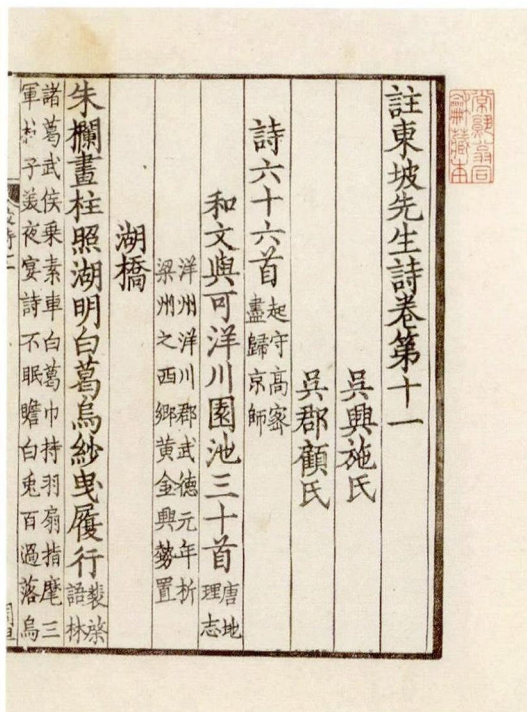 註東坡先生詩卷第十一
吳興施氏
吳郡顧氏
詩六十六首起守高密盡歸京師
和文與可洋川園池三十首唐地理志
洋州洋川郡武德元年折梁州之西鄉黃金興勢置
湖橋
朱欄畫柱照湖明白葛烏紗曳履行裴啓語林
諸葛武侯乘素車白葛巾持羽扇指麾三
軍杜子美夜宴詩不眠瞻白兔百過落烏